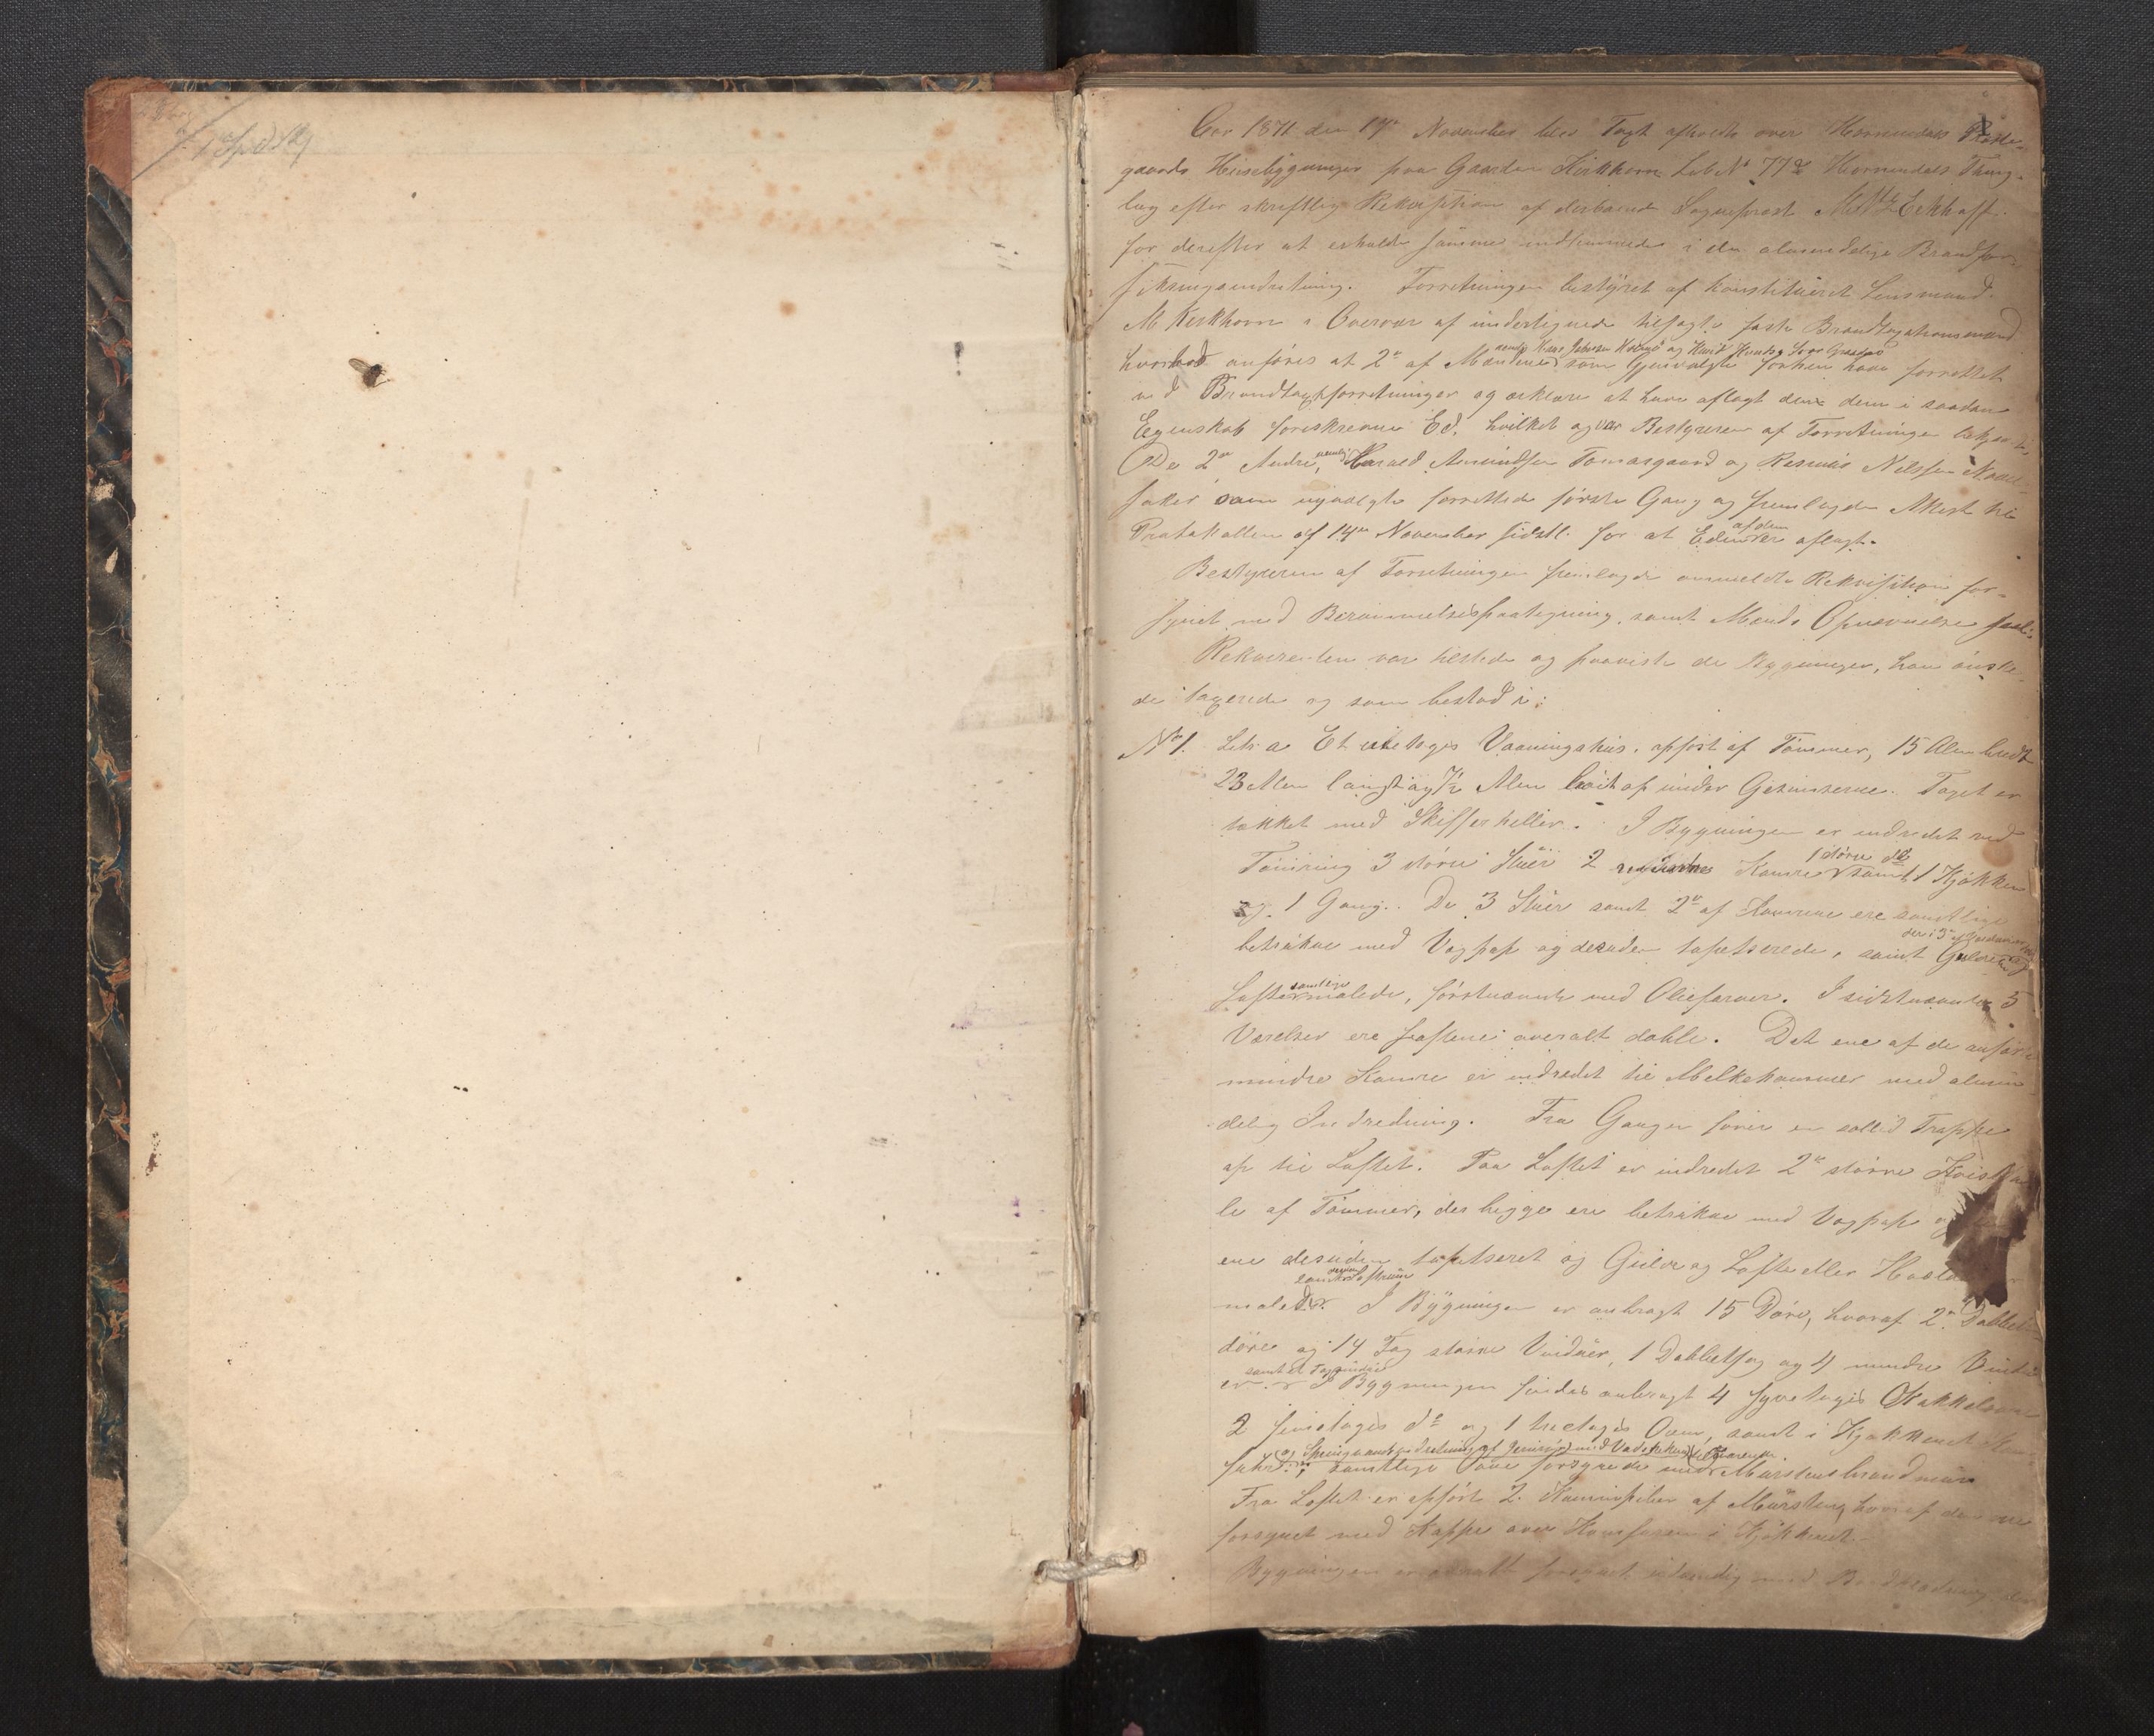 Aar 1871 den 17de November blev Taxt afholdt over Hornindals Præste-
gaards Huusbygninger paa Gaarden Kirkhorn Løb No 77a Hornindals Thing-
lag efter skriftlig Rekvisition af derboende Sogneprest Eckhoff
for derefter at erholde samme indlemmede i den almindelige Brandfor-
sikringsindretning. Forretningen bestyret af konstitueret Lensmand
M Kirkhorn i Overvær af undertegnede tilsagte faste Brandtaxationsmænd
hvorhos anføres at 2de af Mændene som gjenvalgte forhen have forrettet
ved Brandtaxtforretninger og erklære at have aflagt den dem i saadan
Egenskab foreskrevne Ed, hvilket og var Bestyreren af Forretningen bekjendt
De 2de Andre, nemlig Harald Amundsen Tomasgaard og Rasmus Nilssen
som nyvalgte forrettede første Gang og fremlagde Attest fra
Protokollen af 14de November sidstl. for at Eden er af dem aflagt.
Bestyreren af Forretningen fremlagde anmeldte Rekvisition for-
synet med Berammelsespaategning, samt Mænds Opnævnelse
Rekvirenten var tilstede og paaviste de Bygninger, han ønske-
de taxerede og som bestod i:
No 1. Litr a Et etages Vaaningshus, opført af Tømmer, 15 Alen bredt
23 Alen langt og 7½ Alen høit op under Gesimserne. Taget er
tækket med Skifferheller. I Bygningen er indredet ved
Tømring 3 større Stuer 2 mindre Kamre 1 større do samt 1 Kjøkken
og 1 Gang. De 3 Stuer samt 2de af Kamrene ere samtlige
betrukne med Vægpap og desuden tapetserede, samt Gulve og
Lofte samtlige malede, førstnævnte med Oliefarver. I sidstnævnte 5
Værelser ere Loftene overalt doble. Det ene af de anførte
mindre Kamre er indredet til Melkekammer med almin-
delig Indredning. Fra Gangen fører en solid Trappe
op til Loftet. Paa Loftet er indredet 2de større
af Tømmer, der begge ere betrukne med Vægpap og
ene desuden tapetseret og Gulve og Lofte eller
malede. I Bygningen er anbragt 15 Døre, hvoraf 2de Dobbelt-
døre og 14 Fag større Vinduer, 1 Dobbeltfag og 4 mindre Vindu-
er samt et Tagvindue I Bygningen findes anbragt 4 fyretages Kakkelovne
2 femetages do og 1 treetages Ovn, samt i Kjøkkenet
samtlige Ovne forsynede med Murstensbrandmure
Fra Loftet er opført 2 Kaminpiber af Mursten, hvoraf den ene
forsynet med Kappe over Komfuren i Kjøkkenet.
Bygningen er overalt forsynet udvendig med Bordklædning